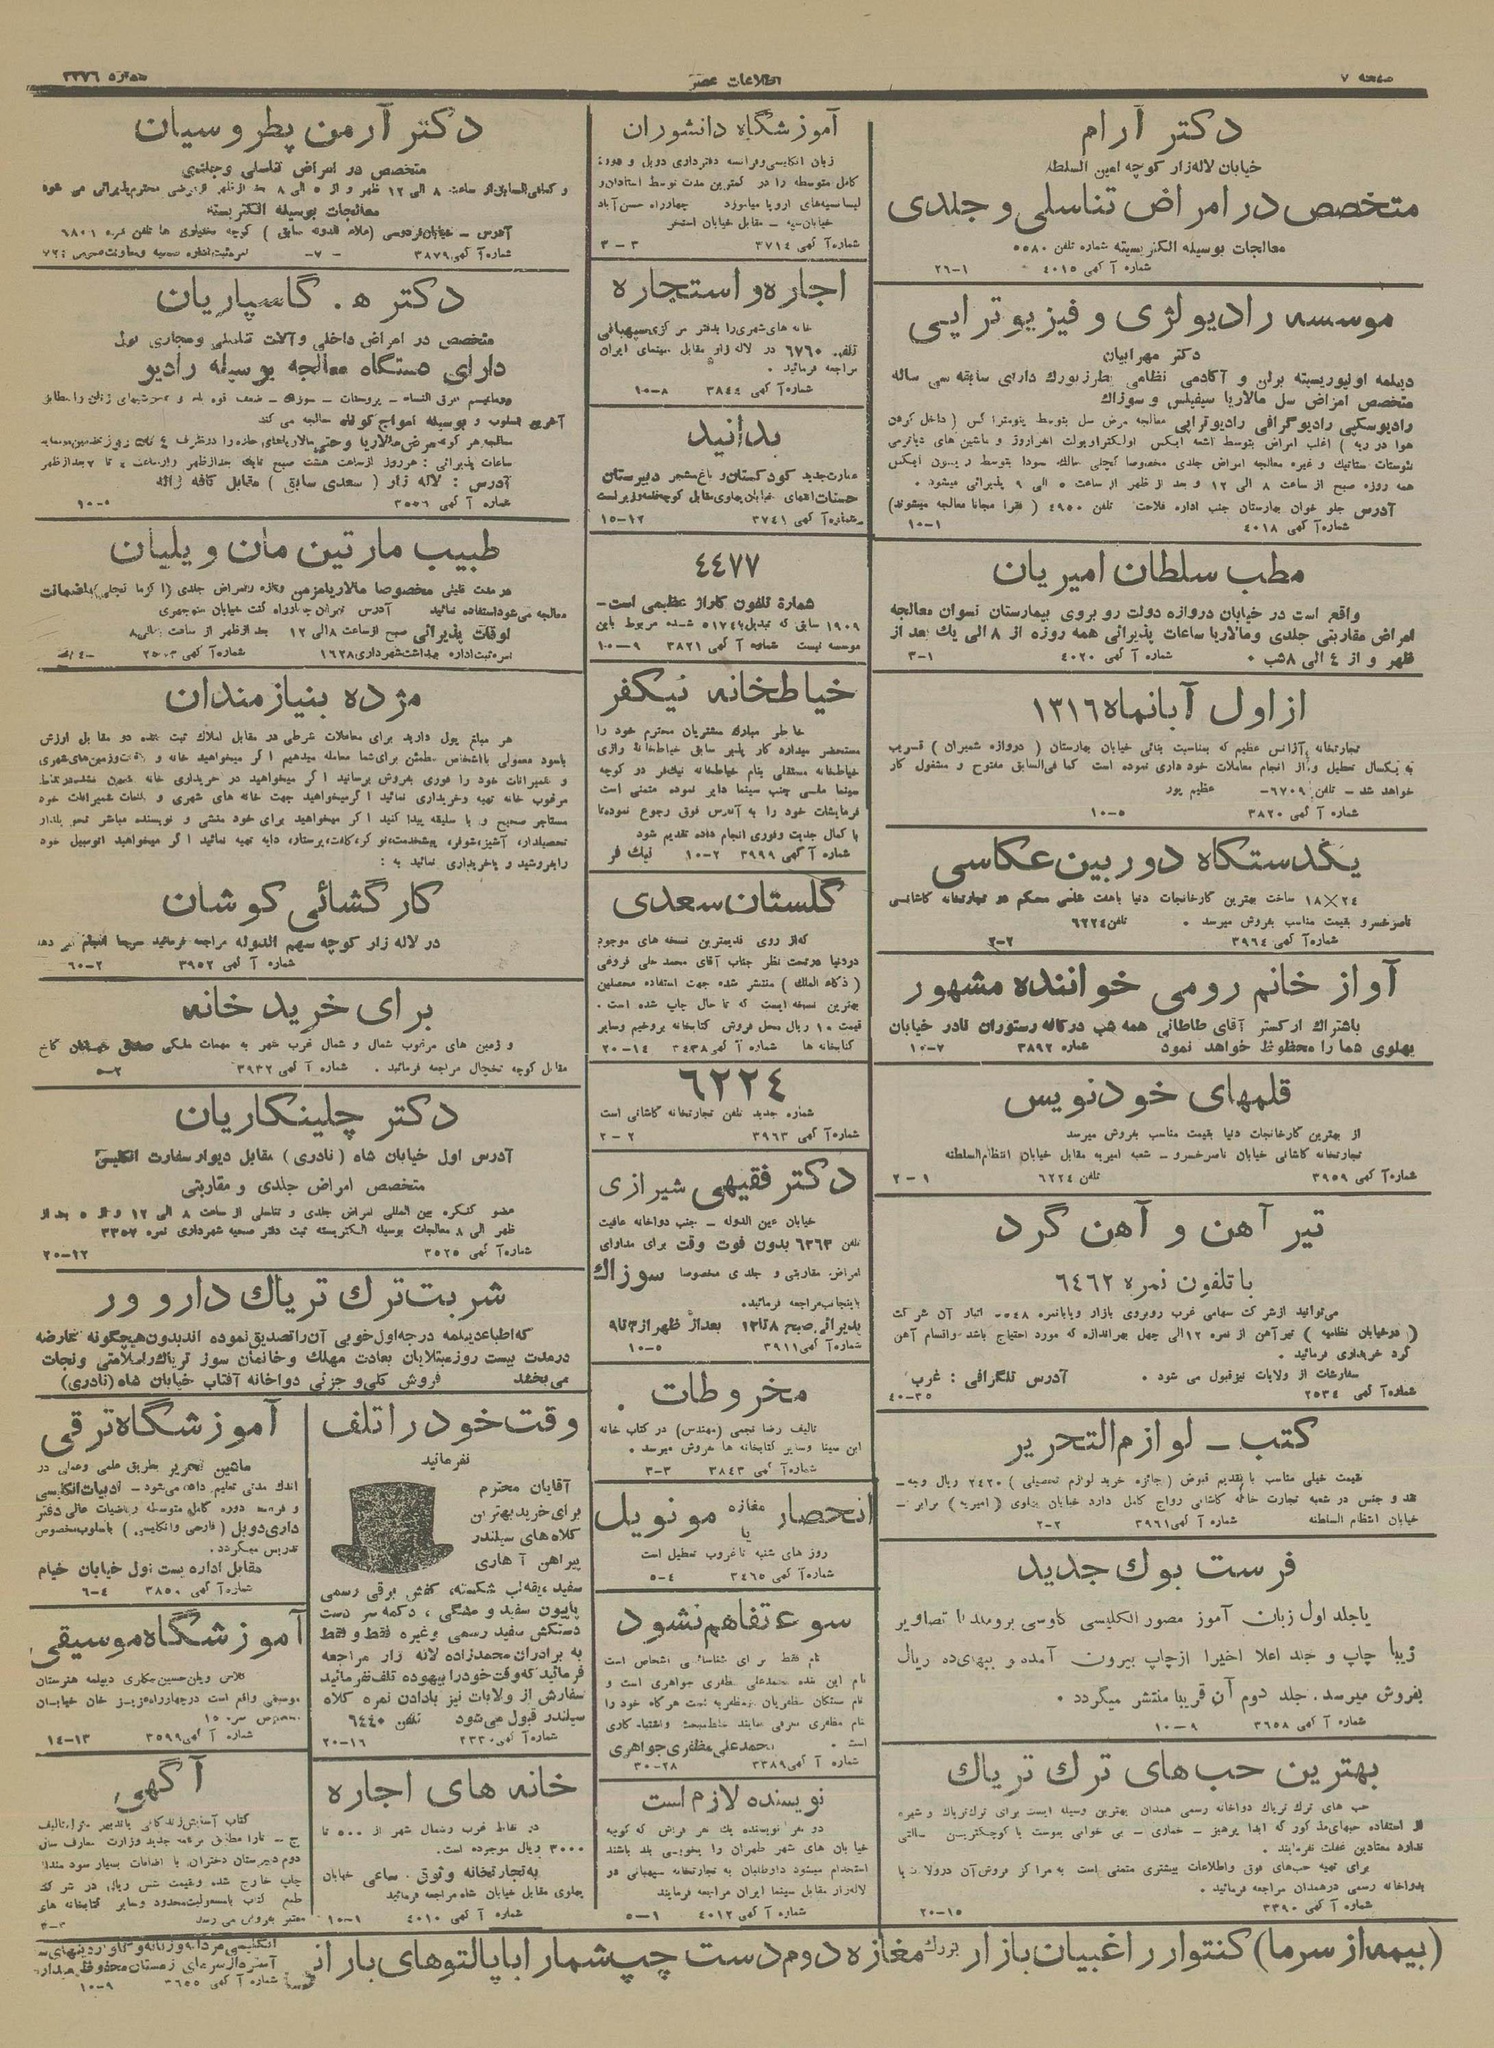 صفحه ۷
اطلاعات عصر
شماره ۳۳۷٦
دکتر آرام
خیابان لاله‌زار کوچه امین السلطنه
متخصص در امراض تناسلی و جلدی
معالجات بوسیله الکتریسیته شماره تلفن ۵۵۸۰
شماره آگهی ۴۰۱۵ ۱–۲٦
موسسه رادیولژی و فیزیوتراپی
دکتر مهرابیان
دیپلمه اونیورسیته برلن و آکادمی نظامی پطرزبورگ دارای سابقه سی ساله
متخصص امراض سل مالاریا سیفیلیس و سوزاک
رادیوسکپی رادیوگرافی رادیوتراپی معالجه مرض سل بتوسط پنومتراکس ( داخل کردن
هوا در ریه ) اغلب امراض بتوسط اشعه ایکس
همه روزه صبح از ساعت ۸ الی ۱۲ و بعد از ظهر از ساعت ۵ الی ۹ پذیرائی میشود .
آدرس جلو خوان بهارستان جنب اداره فلاحت تلفن ٤٩٥٠ ( فقرا مجانا معالجه میشوند )
شماره آگهی ٤٠١٨ ۱–۱۰
مطب سلطان امیریان
واقع است در خیابان دروازه دولت رو بروی بیمارستان نسوان معالجه
امراض مقاربتی جلدی ومالاریا ساعات پذیرائی همه روزه از ۸ الی یك بعد از
ظهر و از ٤ الی ۸ شب .
شماره آگهی ٤٠٢٠ ۱–۳
از اول آبانماه ۱۳۱٦
تجارتخانه آژانس عظیم که بمناسبت بنائی خیابان بهارستان ( دروازه شمیران ) قریب
به یکسال تعطیل و از انجام معاملات خود داری نموده است کما فی‌السابق مفتوح و مشغول کار
خواهد شد – تلفن ٦٧٠٩ – عظیم پور
شماره آگهی ۳۸۲۰ ۵–۱۰
یکدستگاه دوربین عکاسی
۲٤×۱۸ ساخت بهترین کارخانجات دنیا باهفت شاسی محکم در تجارتخانه کاشانی
ناصرخسرو بقیمت مناسب بفروش میرسد . تلفن ٦٢٢٤
شماره آگهی ۳۹٦٤ ۲–۲
آواز خانم رومی خواننده مشهور
باشتراك ارکستر آقای طاطائی همه شب در کافه رستوران نادر خیابان
پهلوی شما را محظوظ خواهد نمود شماره ۳۸۹۲ ۷–۱۰
قلمهای خودنویس
از بهترین کارخانجات دنیا بقیمت مناسب بفروش میرسد
تجارتخانه کاشانی خیابان ناصرخسرو – شعبه امیریه مقابل خیابان انتظام‌السلطنه
شماره آگهی ۳۹۵۹ تلفن ٦٢٢٤ ۱–۲
تیر آهن و آهن گرد
با تلفون نمره ٦٤٦٢
می‌توانید ازشرکت سهامی غرب روبروی بازار ویابانمره ۵۵٤۸ انبار آن شرکت
( در خیابان نظامیه ) تیرآهن از نمره ۱۲ الی چهل بهراندازه که مورد احتیاج باشد واقسام آهن
گرد خریداری فرمائید .
سفارشات از ولایات نیز قبول می شود . آدرس تلگرافی : غرب
شماره آگهی ۲۵۳٤ ۳۵–٤۰
کتب – لوازم التحریر
قیمت خیلی مناسب با تقدیم قبوض ( جائزه خرید لوازم تحصیلی ) ۲٤۲۰ ریال وجه –
نقد و جنس در شعبه تجارت خانه کاشانی رواج کامل دارد خیابان پهلوی ( امیریه ) برابر –
خیابان انتظام السلطنه شماره آگهی ۳۹٦۱ ۲–۲
فرست بوك جدید
یاجلد اول زبان آموز مصور انگلیسی کاوسی برومند با تصاویر
زیبا چاپ و جلد اعلا اخیرا ازچاپ بیرون آمده و ببهای ده ریال
بفروش میرسد. جلد دوم آن قریبا منتشر میگردد .
شماره آگهی ۳٦۵۸ ۹–۱۰
بهترین حب‌های ترك تریاك
حب های ترك تریاك دواخانه رسمی همدان بهترین وسیله ایست برای ترك تریاك و شیره
از استفاده حبهای مذکور که ابدا پرهیز – خماری – بی خوابی یبوست یا کوچکترین
ندارد معتادین غفلت نفرمایند .
برای تهیه حب‌های فوق واطلاعات بیشتری متمنی است به مراکز فروش آن درولات یا
بدواخانه رسمی درهمدان مراجعه فرمائید .
شماره آگهی ۳۳۹۰ ۱۵–۲۰
آموزشگاه دانشوران
زبان انگلیسی وفرانسه دفترداری دوبل و دوره
کامل متوسطه را در کمترین مدت توسط استادان و
لیسانسیه‌های اروپا میاموزد چهارراه حسن آباد
خیابان سپه – مقابل خیابان استخر
شماره آگهی ۳۷۱٤ ۳–۳
اجاره و استجاره
خانه های شهری را بدفتر مرکزی سپهبانی
تلفن ٦٧٦٠ در لاله زار مقابل سینمای ایران
مراجعه فرمائید .
شماره آگهی ۳۸٤٤ ۸–۱۰
بدانید
عمارت جدید کودکستان و باغ مشجر دبیرستان
شماره آگهی ۳۷٤۱ ۱۲–۱۵
٤٤٧٧
شماره تلفون گاراژ عظیمی است –
۱۹۰۹ سابق که تبدیل به ۵۱۷٤ شده مربوط باین
موسسه نیست شماره آگهی ۳۸۲۱ ۹–۱۰
خیاطخانه نیکفر
خاطر مبارك مشتریان محترم خود را
مستحضر میدارد کار پذیر سابق خیاطخانهٔ رازی
خیاطخانه مستقلی بنام خیاطخانه نیك‌فر در کوچه
سینما ملی جنب سینما دایر نموده متمنی است
فرمایشات خود را به آدرس فوق رجوع نموده تا
با کمال جدیت وفوری انجام داده تقدیم شود
شماره آگهی ۳۹۹۹ ۲–۱۰ نیك فر
گلستان سعدی
که‌از روی قدیمترین نسخه های موجود
دردنیا درتحت نظر جناب آقای محمد علی فروغی
( ذکاء الملك ) منتشر شده جهت استفاده محصلین
بهترین نسخه ایست که تا حال چاپ شده است .
قیمت ۱۰ ریال محل فروش کتابخانه بروخیم وسایر
کتابخانه ها شماره آگهی ۳٤۳۸ ۱٤–۲۰
٦٢٢٤
شماره جدید تلفن تجارتخانه کاشانی است
شماره آگهی ۳۹٦۳ ۲–۲
دکتر فقیهی شیرازی
خیابان عین الدوله – جنب دواخانه عافیت
تلفن ٦٣٦٣ بدون فوت وقت برای مداوای
امراض مقاربتی و جلدی مخصوصا سوزاك
باینجانب مراجعه فرمائید .
پذیرائی صبح ۸ تا ۱۲ بعد از ظهر از ۳ تا ۹
شماره آگهی ۳۹۱۱ ۵–۱۰
مخروطات
تالیف رضا نجمی (مهندس) در کتاب خانه
ابن سینا وسایر کتابخانه ها بفروش میرسد .
شماره آگهی ۳۸٤۳ ۳–۳
انحصار یا مغازه مونوپل
روز های شنبه تا غروب تعطیل است
شماره آگهی ۳٤٦۵ ٤–۵
سوء تفاهم نشود
نام فقط برای شناسائی اشخاص است
نام این بنده محمدعلی مظفری جواهری است و
نام بستگان مظفریان ومظفریه است هرگاه خود را
بنام مظفری معرفی نمایند خلط مبحث و اشتباه کاری
است . محمدعلی مظفری جواهری
شماره آگهی ۳۳۸۹ ۲۸–۳۰
نویسنده لازم است
دو نفر نویسنده یك نفر فراش که کوچه
خیابان های شهر طهران را بخوبی بلد باشند
استخدام میشود داوطلبان به تجارتخانه سپهبانی در
لاله‌زار مقابل سینما ایران مراجعه فرمایند
شماره آگهی ٤٠١٢ ۱–۵
دکتر آرمن پطروسیان
متخصص در امراض تناسلی وجلدی
و کمافی‌السابق از ساعت ۸ الی ۱۲ ظهر و از ۵ الی ۸ بعد از ظهر از مرضی محترم پذیرائی می شود
معالجات بوسیله الکتریسته
آدرس – خیابان فردوسی (علاء الدوله سابق) کوچه بختیاری ها تلفن نمره ٦٨٠١
شماره آگهی ۳۸۷۹ –۷–
دکتر ه. گاسپاریان
متخصص در امراض داخلی و آلات تناسلی ومجاری بول
دارای دستگاه معالجه بوسیله رادیو
آخرین اسلوب و بوسیله امواج کوتاه معالجه می کند
آدرس : لاله زار ( سعدی سابق ) مقابل کافه ژاله
شماره آگهی ۳۵۵٦
طبیب مارتین مان ویلیان
در مدت قلیلی مخصوصا مالاریا مزمن وتازه و امراض جلدی (اکزما کچلی) باضمانت
معالجه می‌شود استفاده نمائید
اوقات پذیرائی صبح از ساعت ۸ الی ۱۲ بعد از ظهر از ساعت
نمره ثبت اداره بهداشت شهرداری ۱٦۲۸
مژده بنیازمندان
هر مبلغ پول دارید برای معاملات شرطی در مقابل املاك ثبت شده دو مقابل ارزش
باسود معمولی بااشخاص مطمئن برای شما معامله میدهیم اگر میخواهید خانه و دهات و زمین‌های شهری
و شمیرانات خود را فوری بفروش برسانید اگر میخواهید در خریداری خانه
مرغوب خانه تهیه وخریداری نمائید اگر میخواهید جهت خانه های شهری و باغات شمیرانات خود
مستاجر صحیح و با سلیقه پیدا کنید اگر میخواهید برای خود منشی و نویسنده مباشر تحویلدار
تحصیلدار، آشپز، شوفر، پیشخدمت، نوکر، کلفت، پرستار، دایه تهیه نمائید اگر میخواهید اتومبیل خود
را بفروشید و یاخریداری نمائید به :
کارگشائی کوشان
در لاله زار کوچه سهم الدوله مراجعه فرمائید سریعا انجام می دهد
شماره آگهی ۳۹۵۲ ۲–٦۰
برای خرید خانه
و زمین های مرغوب شمال و شمال غرب شهر به مهمات ملکی صدق خیابان کاخ
مقابل کوچه یخچال مراجعه فرمائید . شماره آگهی ۳۹۳۲ ۲–۵
دکتر چلینگاریان
آدرس اول خیابان شاه (نادری) مقابل دیوار سفارت انگلیس
متخصص امراض جلدی و مقاربتی
عضو کنگره بین المللی امراض جلدی و تناسلی از ساعت ۸ الی ۱۲ و از ۵ بعد از
ظهر الی ۸ معالجات بوسیله الکتریسته ثبت دفتر صحیه شهرداری نمره ۳۳۵۷
شماره آگهی ۳۵۲۵ ۱۲–۲۰
شربت ترك تریاك دارو ور
که اطباء دیپلمه درجه اول خوبی آن را تصدیق نموده اند بدون هیچگونه عارضه
درمدت بیست روز مبتلایان بعادت مهلك و خانمان سوز تریاك را سلامتی ونجات
می‌بخشد فروش کلی و جزئی دواخانه آفتاب خیابان شاه (نادری)
وقت خود را تلف
نفرمائید
آقایان محترم
برای خرید بهترین
کلاه های سیلندر
پیراهن آهاری
سفید، یقه لب شکسته، کفش برقی رسمی
پاپیون سفید و مشگی ، دکمه سر دست
دستکش سفید رسمی وغیره فقط و فقط
به برادران محمدزاده لاله زار مراجعه
فرمائید که وقت خود را بیهوده تلف نفرمائید
سفارش از ولایات نیز بادادن نمره کلاه
سیلندر قبول می شود تلفن ٦٤٤٠
شماره آگهی ۲۳۳۰ ۱٦–۲۰
خانه های اجاره
در نقاط غرب وشمال شهر از ۵۰۰ تا
۳۰۰۰ ریال موجوده است .
به تجارتخانه وثوق . ساعی خیابان
پهلوی مقابل خیابان شاه مراجعه فرمائید
شماره آگهی ٤٠١٠ ۱–۱۰
آموزشگاه ترقی
ماشین تحریر بطریق علمی وعملی در
اندك مدتی تعلیم داده می‌شود – ادبیات انگلیسی
و فرانسه دوره کامل متوسطه ریاضیات عالی دفتر
داری دوبل ( فارسی وانگلیسی ) باسلوب مخصوص
تدریس میگردد .
مقابل اداره بست اول خیابان خیام
شماره آگهی ۳۸۵۰ ٤–٦
آموزشگاه موسیقی
کلاس ویلن حسین دیپلمه هنرستان
موسیقی واقع است درچهارراه عزیز خان خیابان
شماره آگهی ۳۵۹۹ ۱۳–۱٤
آگهی
دوم دبیرستان دختران. با اضافات بسیار سودمند از
چاپ خارج شده وقیمت شش ریال در شرکت
طبع کتاب بامسئولیت محدود وسایر کتابخانه های
معتبر بفروش می رسد
(بیمه از سرما) کنتوار راغبیان بازار بزرك مغازه دوم دست چپ شما را با پالتوهای بارانی
انگلیسی مردانه وزنانه
آستر دار از سرمای زمستان محفوظ میدارد
شماره آگهی ۳٦۵۵ ۹–۱۰